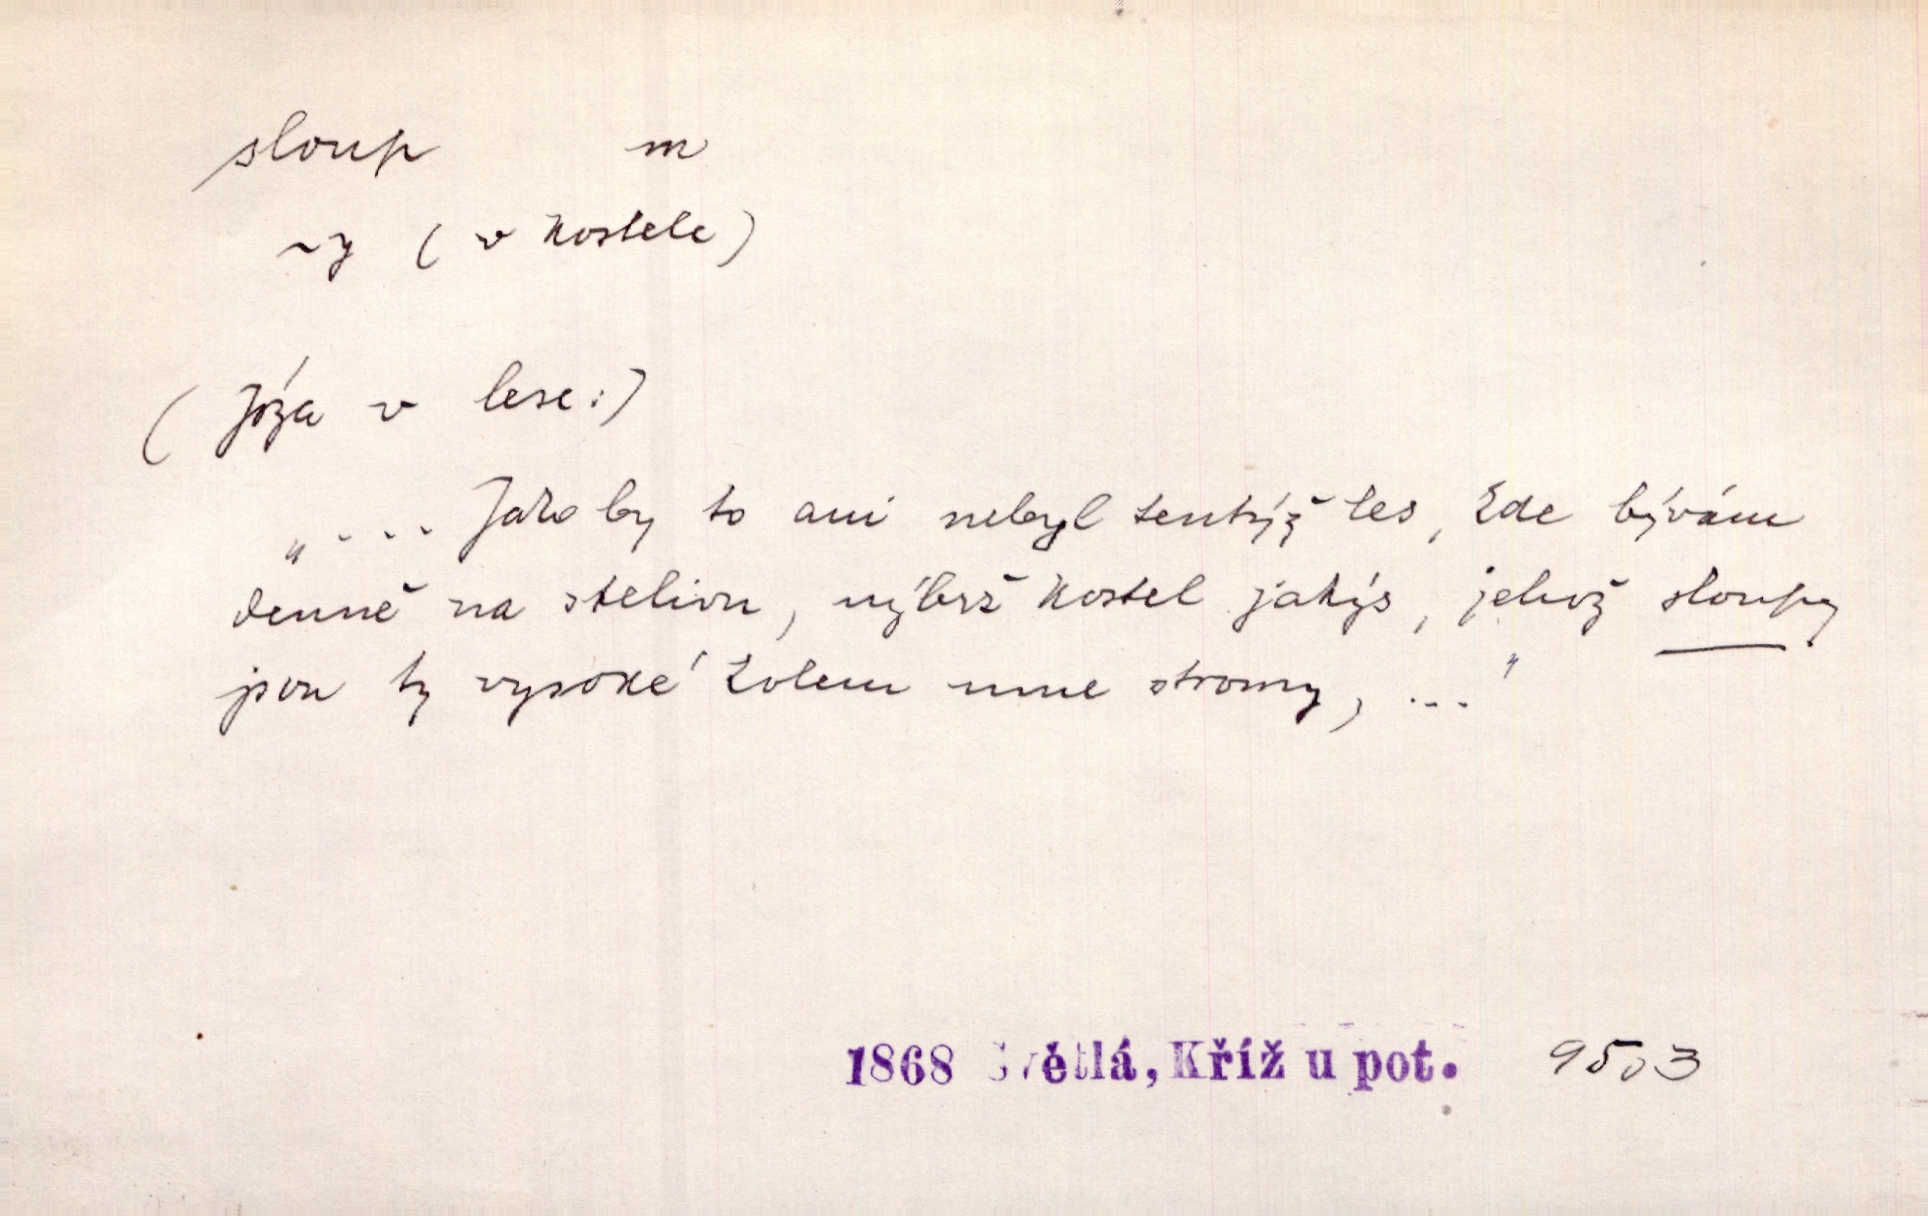 sloup m
~y ( v kostele )
( Józa v lese: )
„ .... Jako by to ani nebyl tentýž les, kde bývám
denně na stelivu, nýbrž kostel jakýs, jehož sloupy
jsou ty vysoké kolem mne stromy, ..."
1868 Světlá, Kříž u pot. 9503